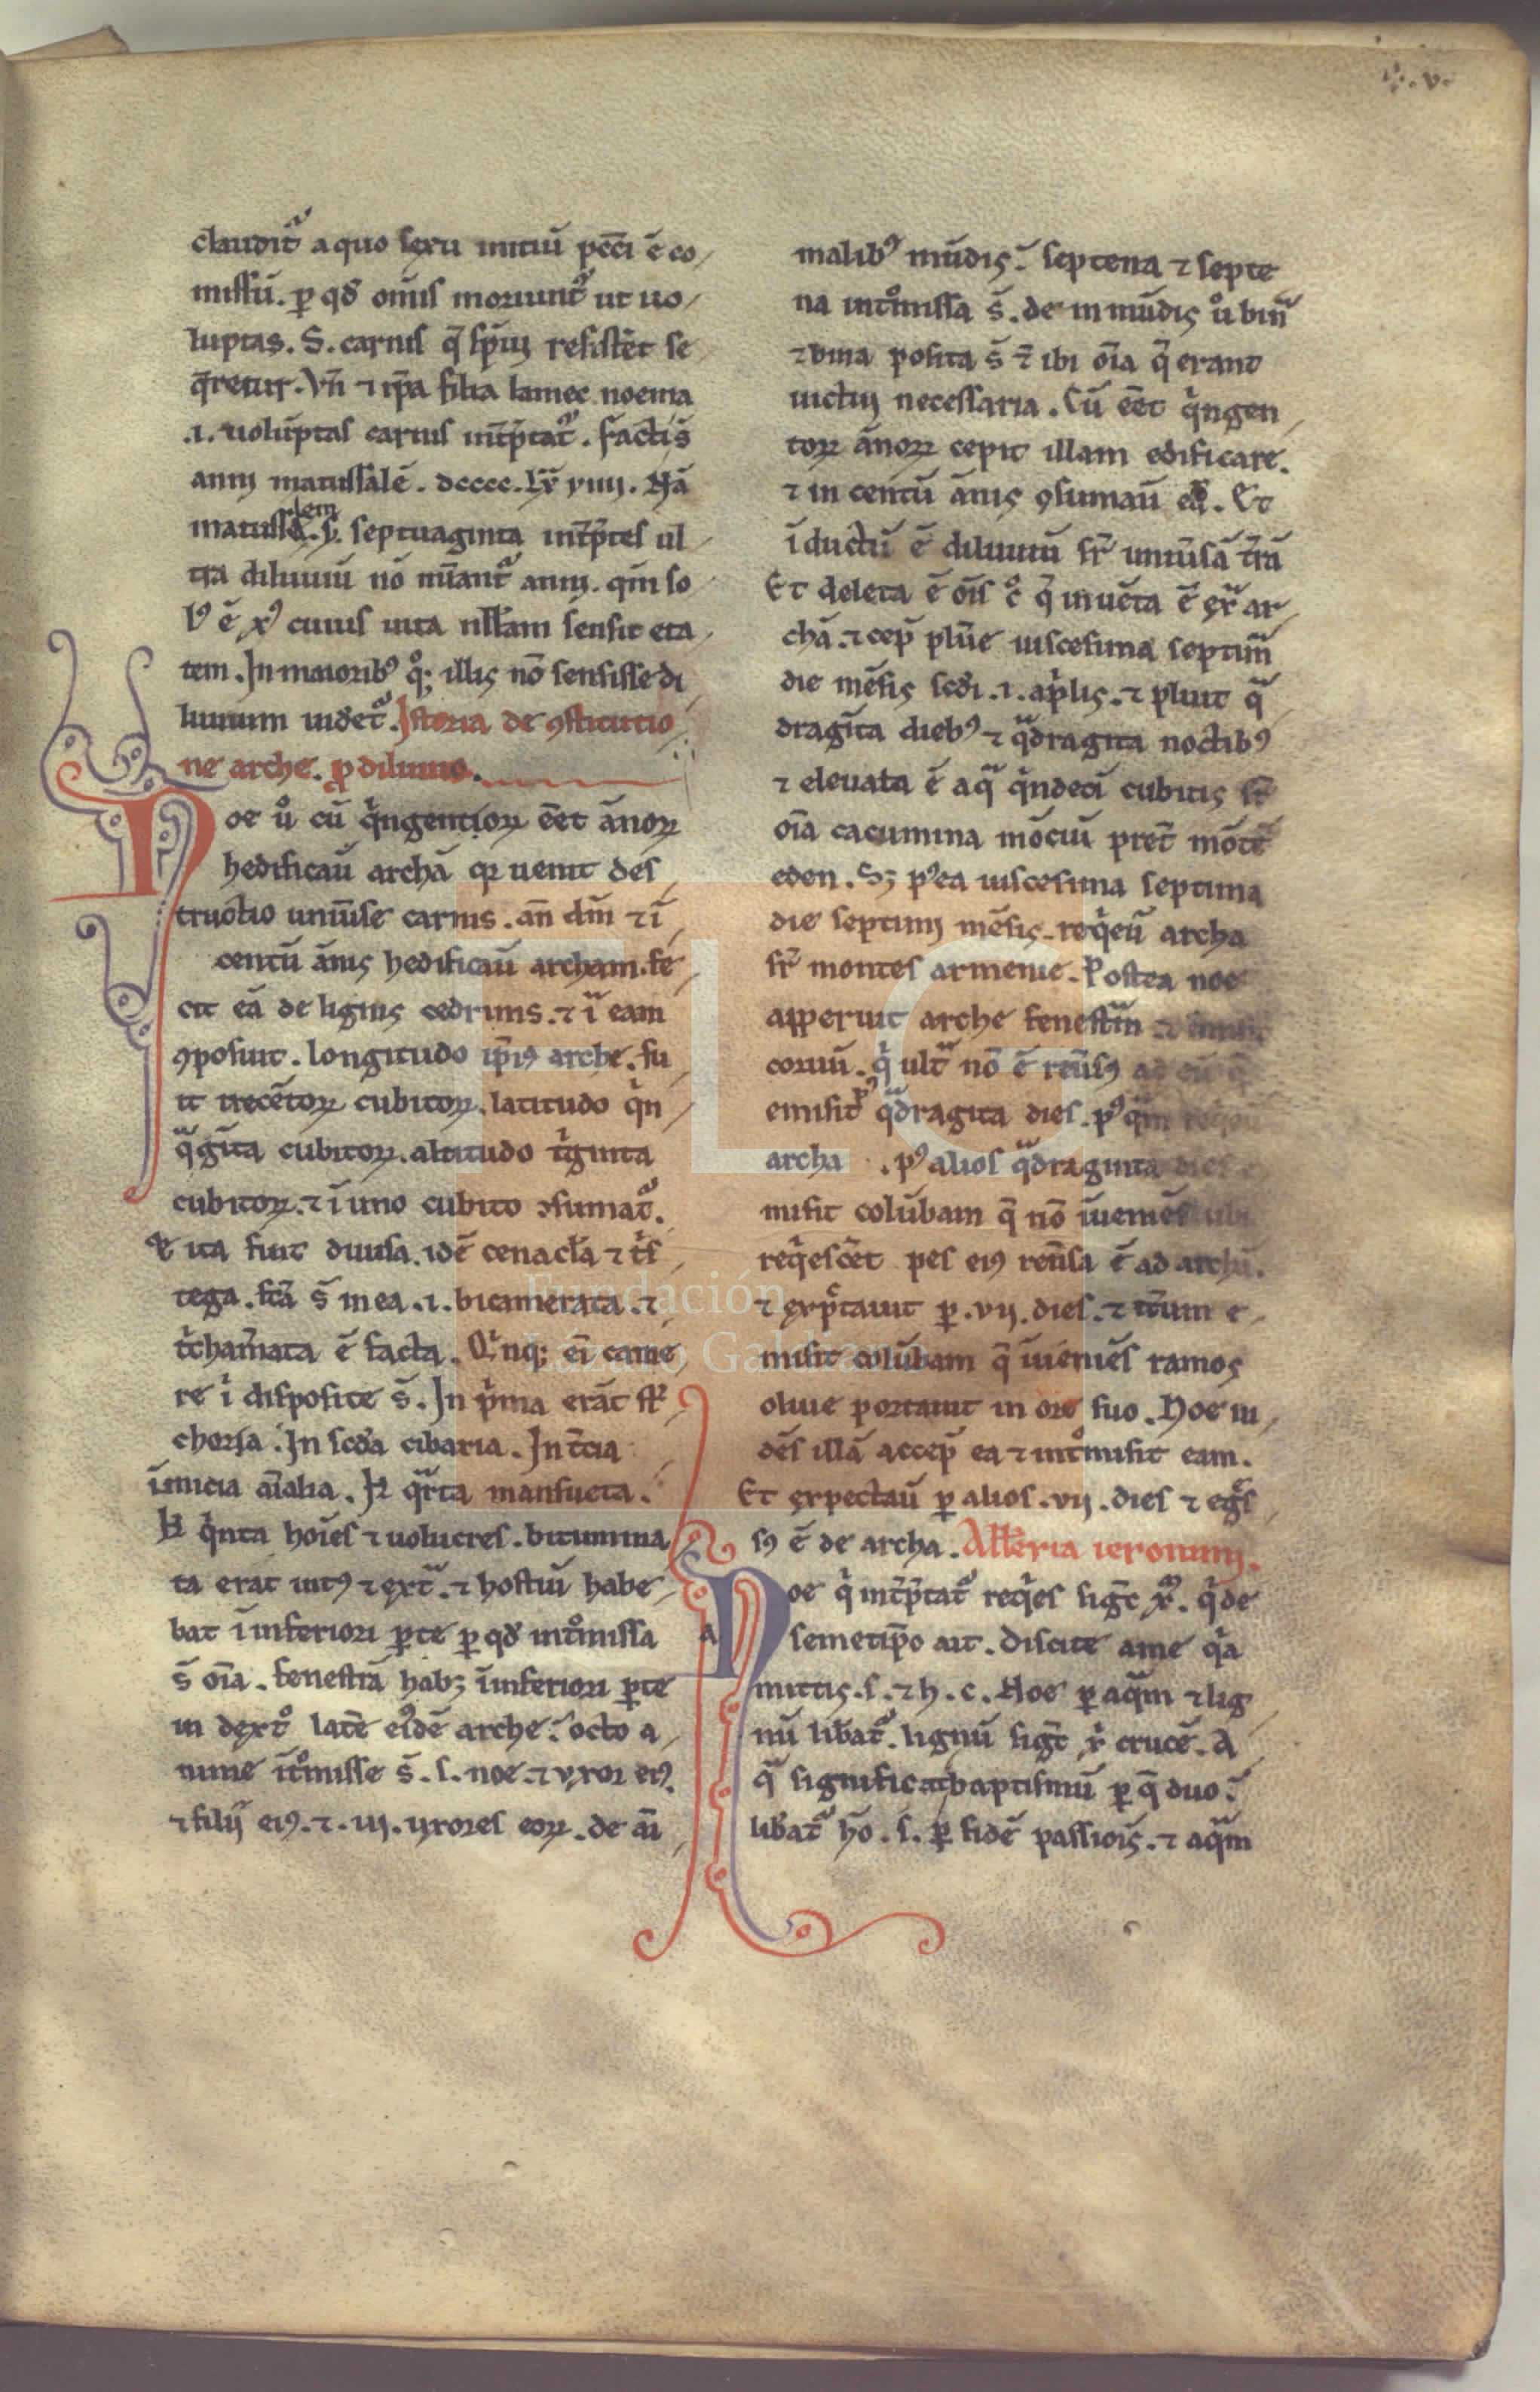 .v.
claudit᷑ a quo sexu initiū pccī ē co
missū. ꝑ qđ om̄is moriunt᷑ ut uo
luptas. S. carnis q̄ sp̄iu resistēt se
q̄retur. Vn̄ ⁊ ip̄a filia lamec noema
.i. uoluptas carnis int̄p̄tat᷑. factis
annis matussalē. dcccc.lx̄ viiii. Nā
matussalem septuaginta int̄p̄tes ul
tra diluuiū nō nūant᷑ anni. qm̄ so
lꝰ ē xp̄c cuius uita nłłam sensit eta
tem. In maioribꝰ q̊; illis nō sensisse di
luuium uidet᷑. Istoria de ꝯstitutio
ne arche. ꝓ diluuio.
Noe ů cū qⁱngentoꝝ eēt ānoꝝ
hedificaū archā qꝛ uenit des
tructio uniūse carnis. an̄ dm̄ ⁊ ī
centū ānis hedificaū archam. fe
cit eā de lignis cedrinis. ⁊ īᵃ eam
ꝯposuit. longitudo ip̄iꝰ arche. fu
it trecētoꝝ cubitoꝝ. latitudo qⁱn
q̈gīta cubitoꝝ. altitudo tⁱginta
cubitoꝝ. ⁊ ī uno cubito ꝯsumat᷑.
Et ita fuit diuisa. idē cenacła ⁊ tⁱs
tega. fcā s̄ in ea .i. bicamerata. ⁊
tⁱcham̄ata ē facta. Qⁱnq; eī came
re ī disposite s̄. In pⁱma erāt st̄
chorsa. In scđa cibaria. In t̄cia
īmicia aīalia. In qᵃrta mansueta.
In qⁱnta hoīes ⁊ uolucres. bitumina
ta erat intꝰ ⁊ extᵃ. ⁊ hostiū habe
bat ī inferiori ꝑte ꝑ qđ int̊missa
s̄ oīa. fenestrā habꝫ ī inferiori ꝑte
in dext̊ latē eiꝰdē arche. octo a
nime īt̊misse s̄. s. noe. ⁊ uxor eiꝰ.
⁊ filij eiꝰ. ⁊ .iij. uxores eoꝝ. de aī
malibꝰ mūdis. septena ⁊ septe
na int̊missa s̄. de in mūdis ů bina
⁊ bina posita s̄ ⁊ ibi oīa q̄ erant
uictui necessaria. Cū eēt qⁱngen
toꝝ ānoꝝ cepit illam edificare.
⁊ in centū ānis ꝯsumaū eā. Et
īductū ē diluuiū sr̄ uniūsā t̄rā
Et deleta ē oīs c̊ q̄ inuēta ē exᵃ ar
chā. ⁊ cep̄ plūe uiscesima septima
die mēsis scđi .i. apⁱlis. ⁊ pluit qᵃ
dragīta diebꝰ ⁊ qᵃdragīta noctibꝰ
⁊ eleuata ē aqᵃ qⁱndecī cubitis sr̄
oīa cacumina mōciū pret̄ mōtē
eden. Sꝫ pꝰea uiscesima septima
die septimi mēsis. reqⁱeū archa
sr̄ montes armenie. Postea noe
apperuit arche fenestᵃm
coruū. qⁱ ultᵃ nō ē reūsꝰ ad eū
emisit qᵃdragīta dies. pꝰqᵃm
archa .pꝰ alios qᵃdraginta dies e
misit colūbam q̄ nō īueniēs ubi
reqⁱescēt pes eiꝰ reūsa ē ad archā.
⁊ exp̄tauit ꝑ .vij. dies. ⁊ it̄um e
misit colūbam q̄ īueniēs ramos
oliue portauit in ore suo. Noe ui
dēs illā accep̄ ea ⁊ int̊misit eam.
Et expectaū ꝑ alios .vij. dies ⁊ egᵃs
sꝰ ē de archa. Ałłeria ieronimi.
Noe qⁱ int̄p̄tat᷑ reqⁱes sigt̄ xp̄m. qⁱ de
semetip̄o ait. Discite a me qⁱa
mitis. s. ⁊ h. c. Noe ꝑ aqᵃm ⁊ lig
nū lib̄at᷑. lignū sigt̄ xⁱ crucē. A
qᵃ significat baptismū ꝑ q̄ duo.
lib̄at᷑ hō. s. ꝑ fidē passiōis. ⁊ aqᵃm
FLG
Fundación
Lázaro Galdiano